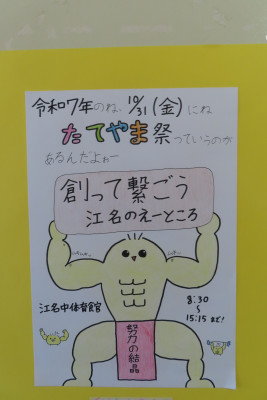 令和7年のね、10/31(金)にね
たてやま祭っていうのが
あるんだよぉー
創って繋ごう
江名のえーところ
江名中体育館
8:30
~
15:15まで!
努力の結晶